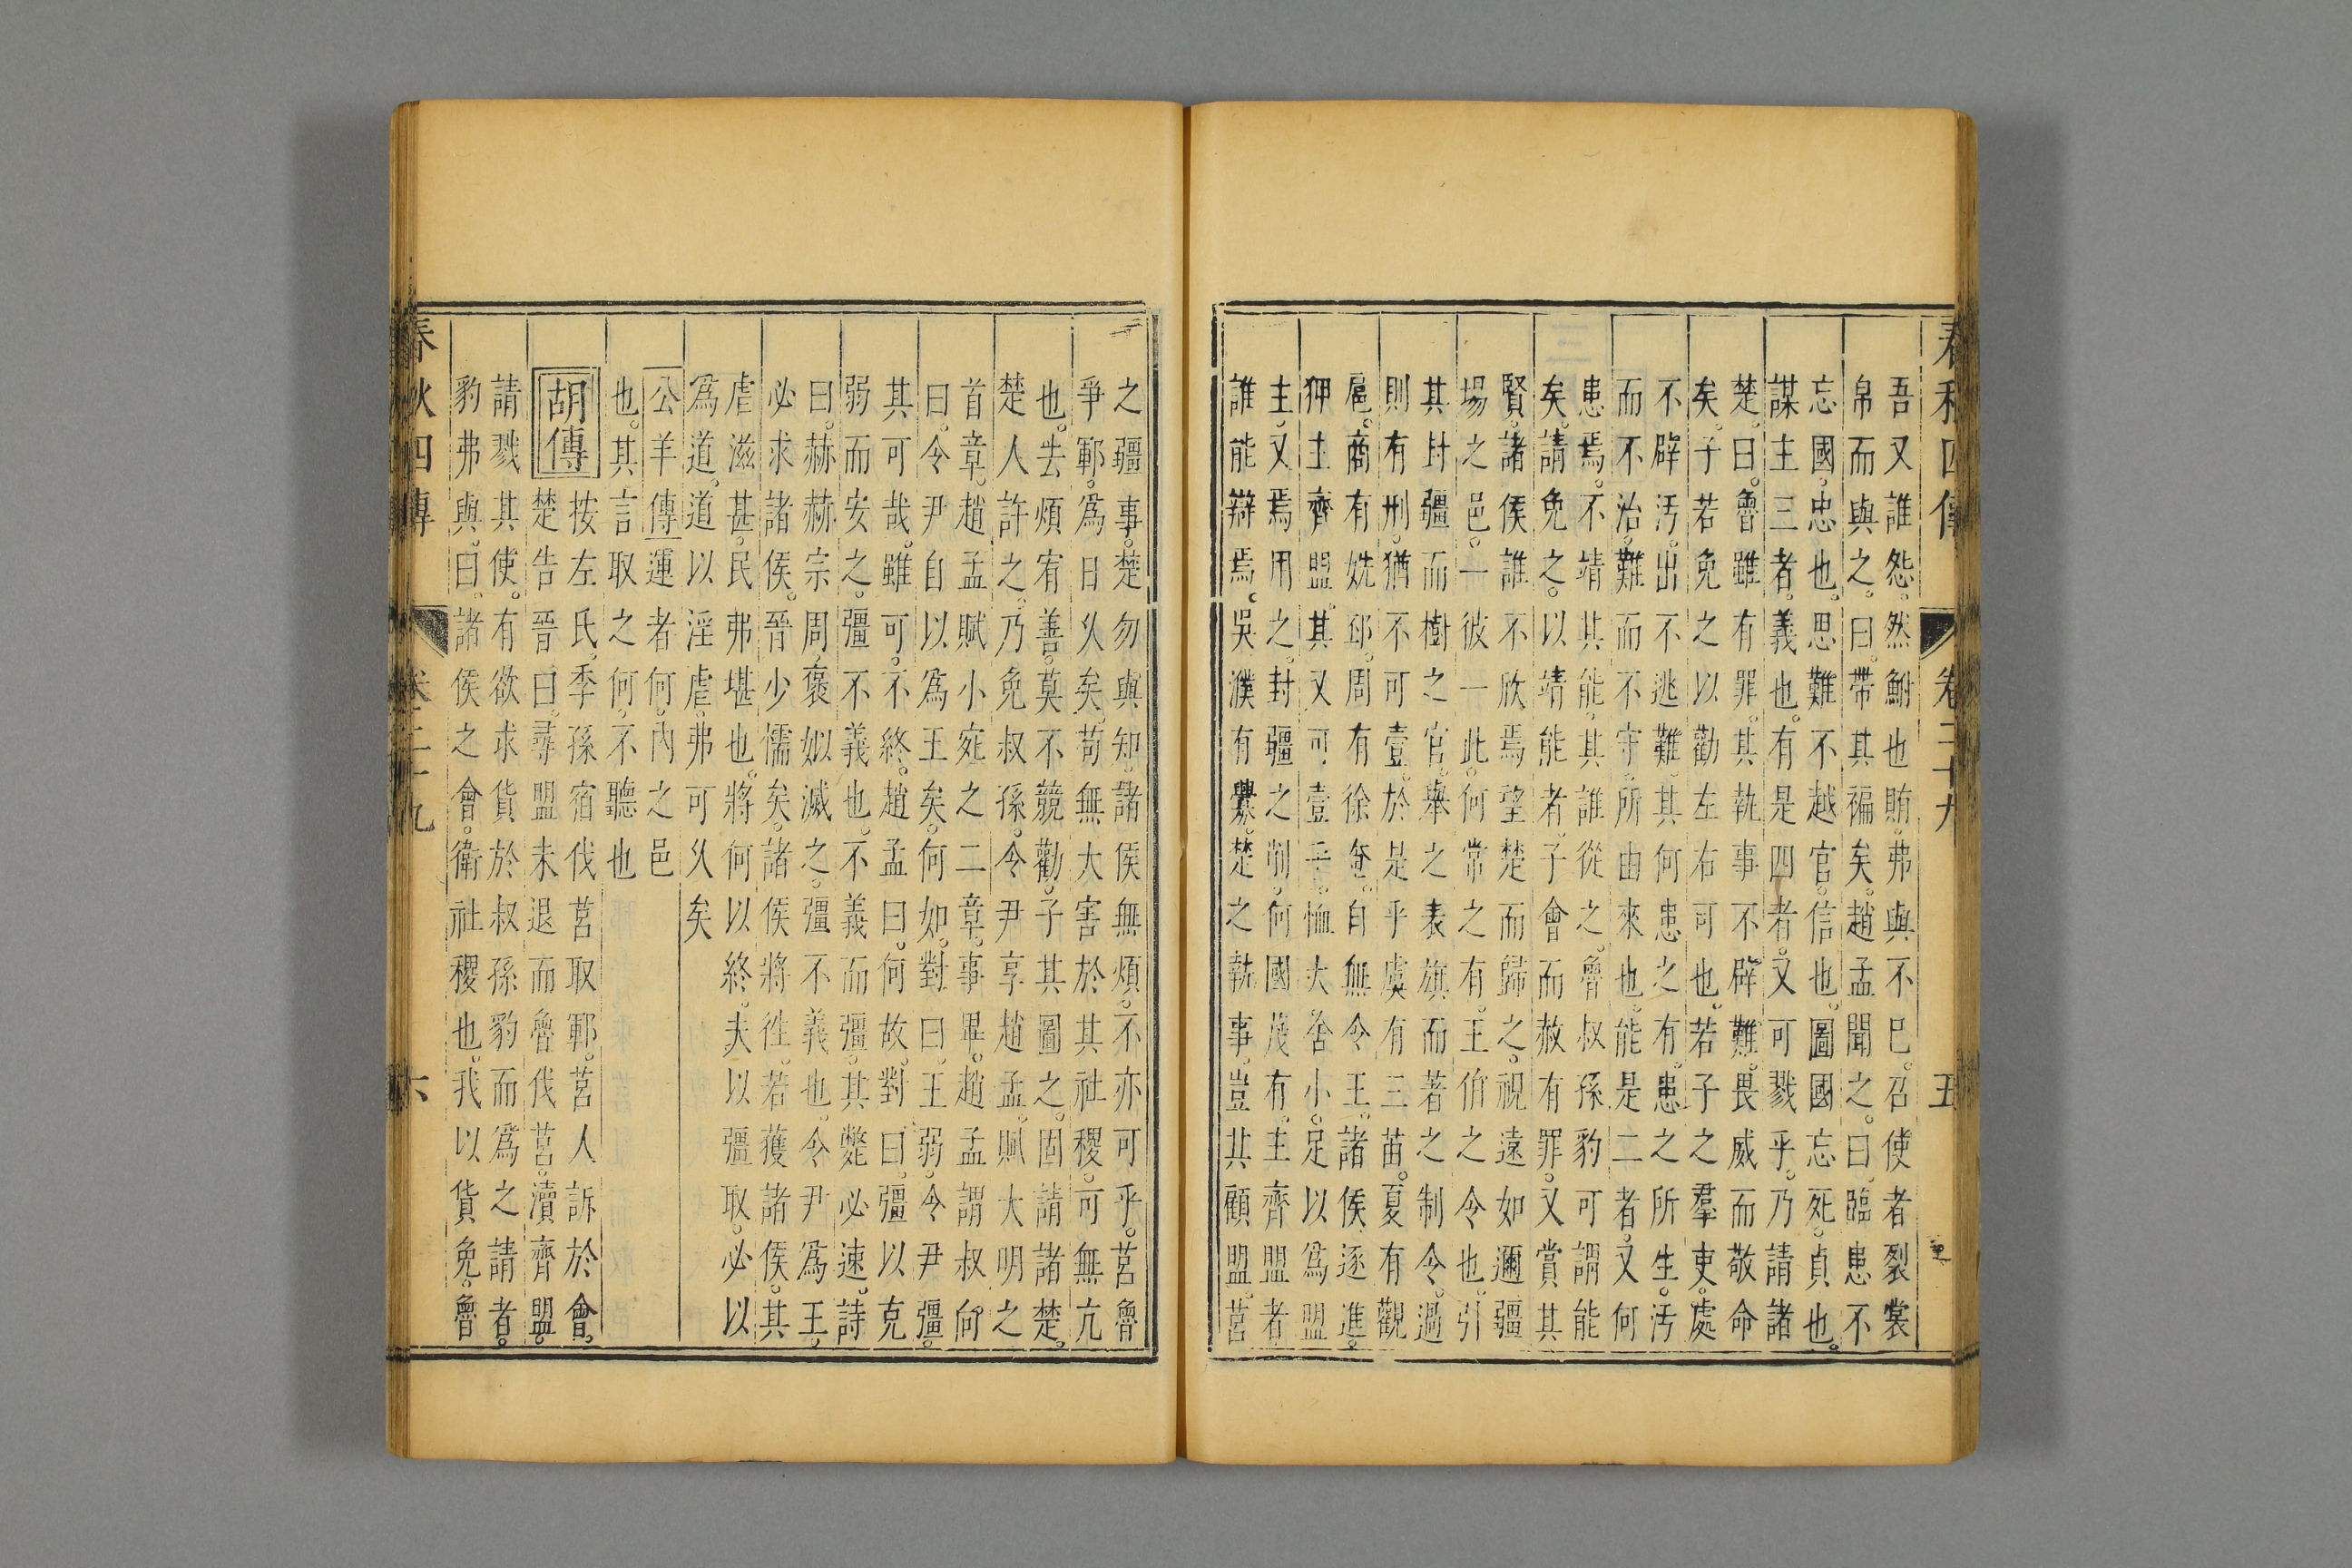 春秋四傳 卷二十九 五
吾又誰怨。然鮒也賄。弗與不已。召使者裂裳
帛而與之。曰。帶其褊矣。趙孟聞之。曰。臨患不
忘國。忠也。思難不越官。信也。圖國忘死。貞也。
謀主三者。義也。有是四者。又可戮乎。乃請諸
楚。曰。魯雖有罪。其執事不辟難。畏威而敬命
矣。子若免之。以勸左右可也。若子之羣吏。處
不辟汚。出不逃難。其何患之有。患之所生。汚
而不治。難而不守。所由來也。能是二者。又何
患焉。不靖其能。其誰從之。魯叔孫豹可謂能
矣。請免之。以靖能者。子會而赦有罪。又賞其
賢。諸侯誰不欣焉望楚而歸之。視遠如邇。疆
場之邑。一彼一此。何常之有。王伯之令也。引
其封疆而樹之官。舉之表旗而著之制令。過
則有刑。猶不可壹。於是乎虞有三苗。夏有觀
扈。商有姺邳。周有徐奄。自無令王。諸侯逐進。
狎主齊盟。其又可壹乎。恤大舍小。足以爲盟
主。又焉用之。封疆之削。何國蔑有。主齊盟者
誰能辯焉。吳濮有釁。楚之執事。豈其顧盟。莒
之疆事。楚勿與知。諸侯無煩。不亦可乎。莒魯
爭鄆。爲日久矣。苟無大害於其社稷。可無亢
也。去煩宥善。莫不競勸。子其圖之。固請諸楚。
楚人許之。乃免叔孫。令尹享趙孟。賦大明之
首章。趙孟賦小宛之二章。事畢。趙孟謂叔向
曰。令尹自以爲王矣。何如。對曰。王弱。令尹彊。
其可哉。雖可。不終。趙孟曰。何故。對曰。彊以克
弱而安之。彊不義也。不義而彊。其斃必速。詩
曰。赫赫宗周。褒姒滅之。彊不義也。令尹爲王。
必求諸侯。晉少懦矣。諸侯將往。若獲諸侯。其
虐滋甚。民弗堪也。將何以終。夫以彊取。必以
爲道。道以淫虐。弗可久矣
公羊傳運者何。內之邑
也。其言取之何。不聽也
胡傳按左氏。季孫宿伐莒取鄆。莒人訴於會。
楚告晉曰。尋盟未退而魯伐莒。瀆齊盟。
請戮其使。有欲求貨於叔孫豹而爲之請者。
豹弗與。曰。諸侯之會。衛社稷也。我以貨免。魯
春秋四傳 卷二十九 六